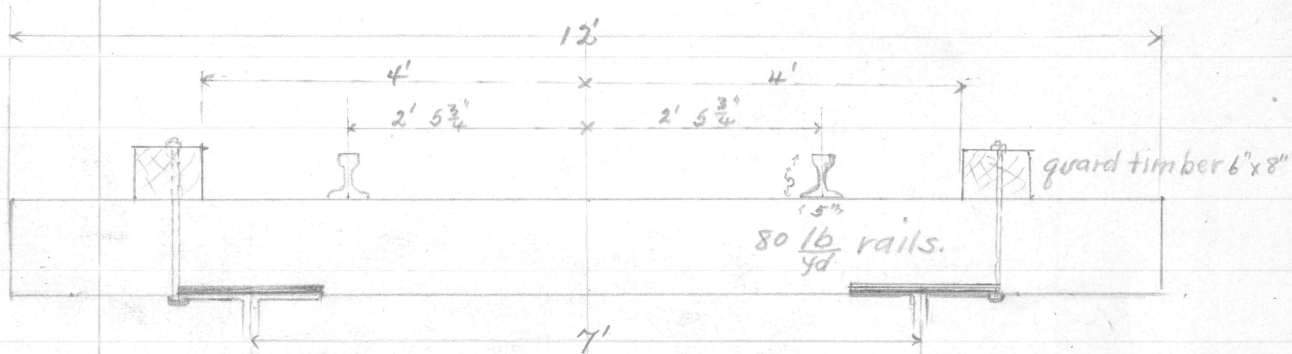 12'
4' 4'
2' 5 3/4" 2' 5 3/4"
guard timber 6"x8"
5"
5"
80 lb/yd rails.
7'